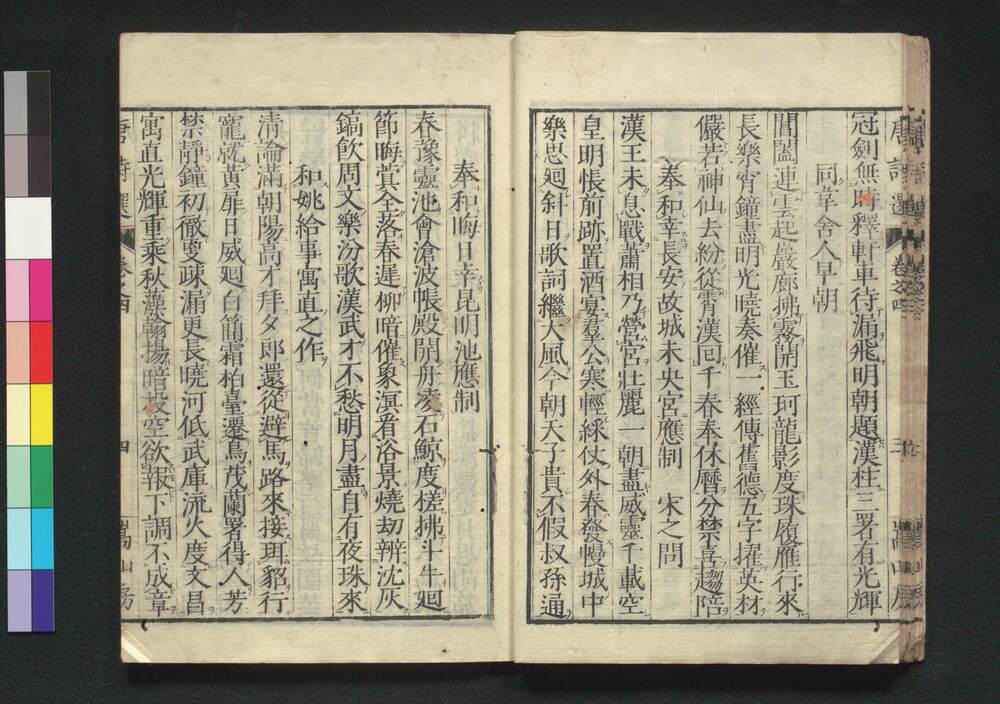 冠劍無時釋軒車待漏飛明朝題漢柱三署有光輝
同韋舍人早朝
閶闔連雲起巖廊拂霧開玉珂龍影度珠履雁行來
長樂宵鐘盡明光曉奏催一經傳舊德五字擢英材
儼若神仙去紛從霄漢回千春奉休曆分禁喜趨陪
奉和幸長安故城未央宮應制 宋之問
漢王未息戰蕭相乃營宮壯麗一朝盡威靈千載空
皇明悵前跡置酒宴羣公寒輕綵仗外春發幔城中
樂思廻斜日歌詞繼大風今朝天子貴不假叔孫通
奉和晦日幸昆明池應制
春豫靈池會滄波帳殿開舟凌石鯨度槎拂斗牛廻
節晦蓂全落春遲柳暗催象溟看浴景燒劫辨沈灰
鎬飲周文樂汾歌漢武才不愁明月盡自有夜珠來
和姚給事寓直之作
清論滿朝陽高才拜夕郎還從避馬路來接珥貂行
寵就黃扉日威廻白簡霜柏臺遷鳥茂蘭署得人芳
禁靜鐘初徹更疎漏更長曉河低武庫流火度文昌
寓直光輝重乘秋藻翰揚暗投空欲報下調不成章
唐詩選 卷之四 四 嵩山房